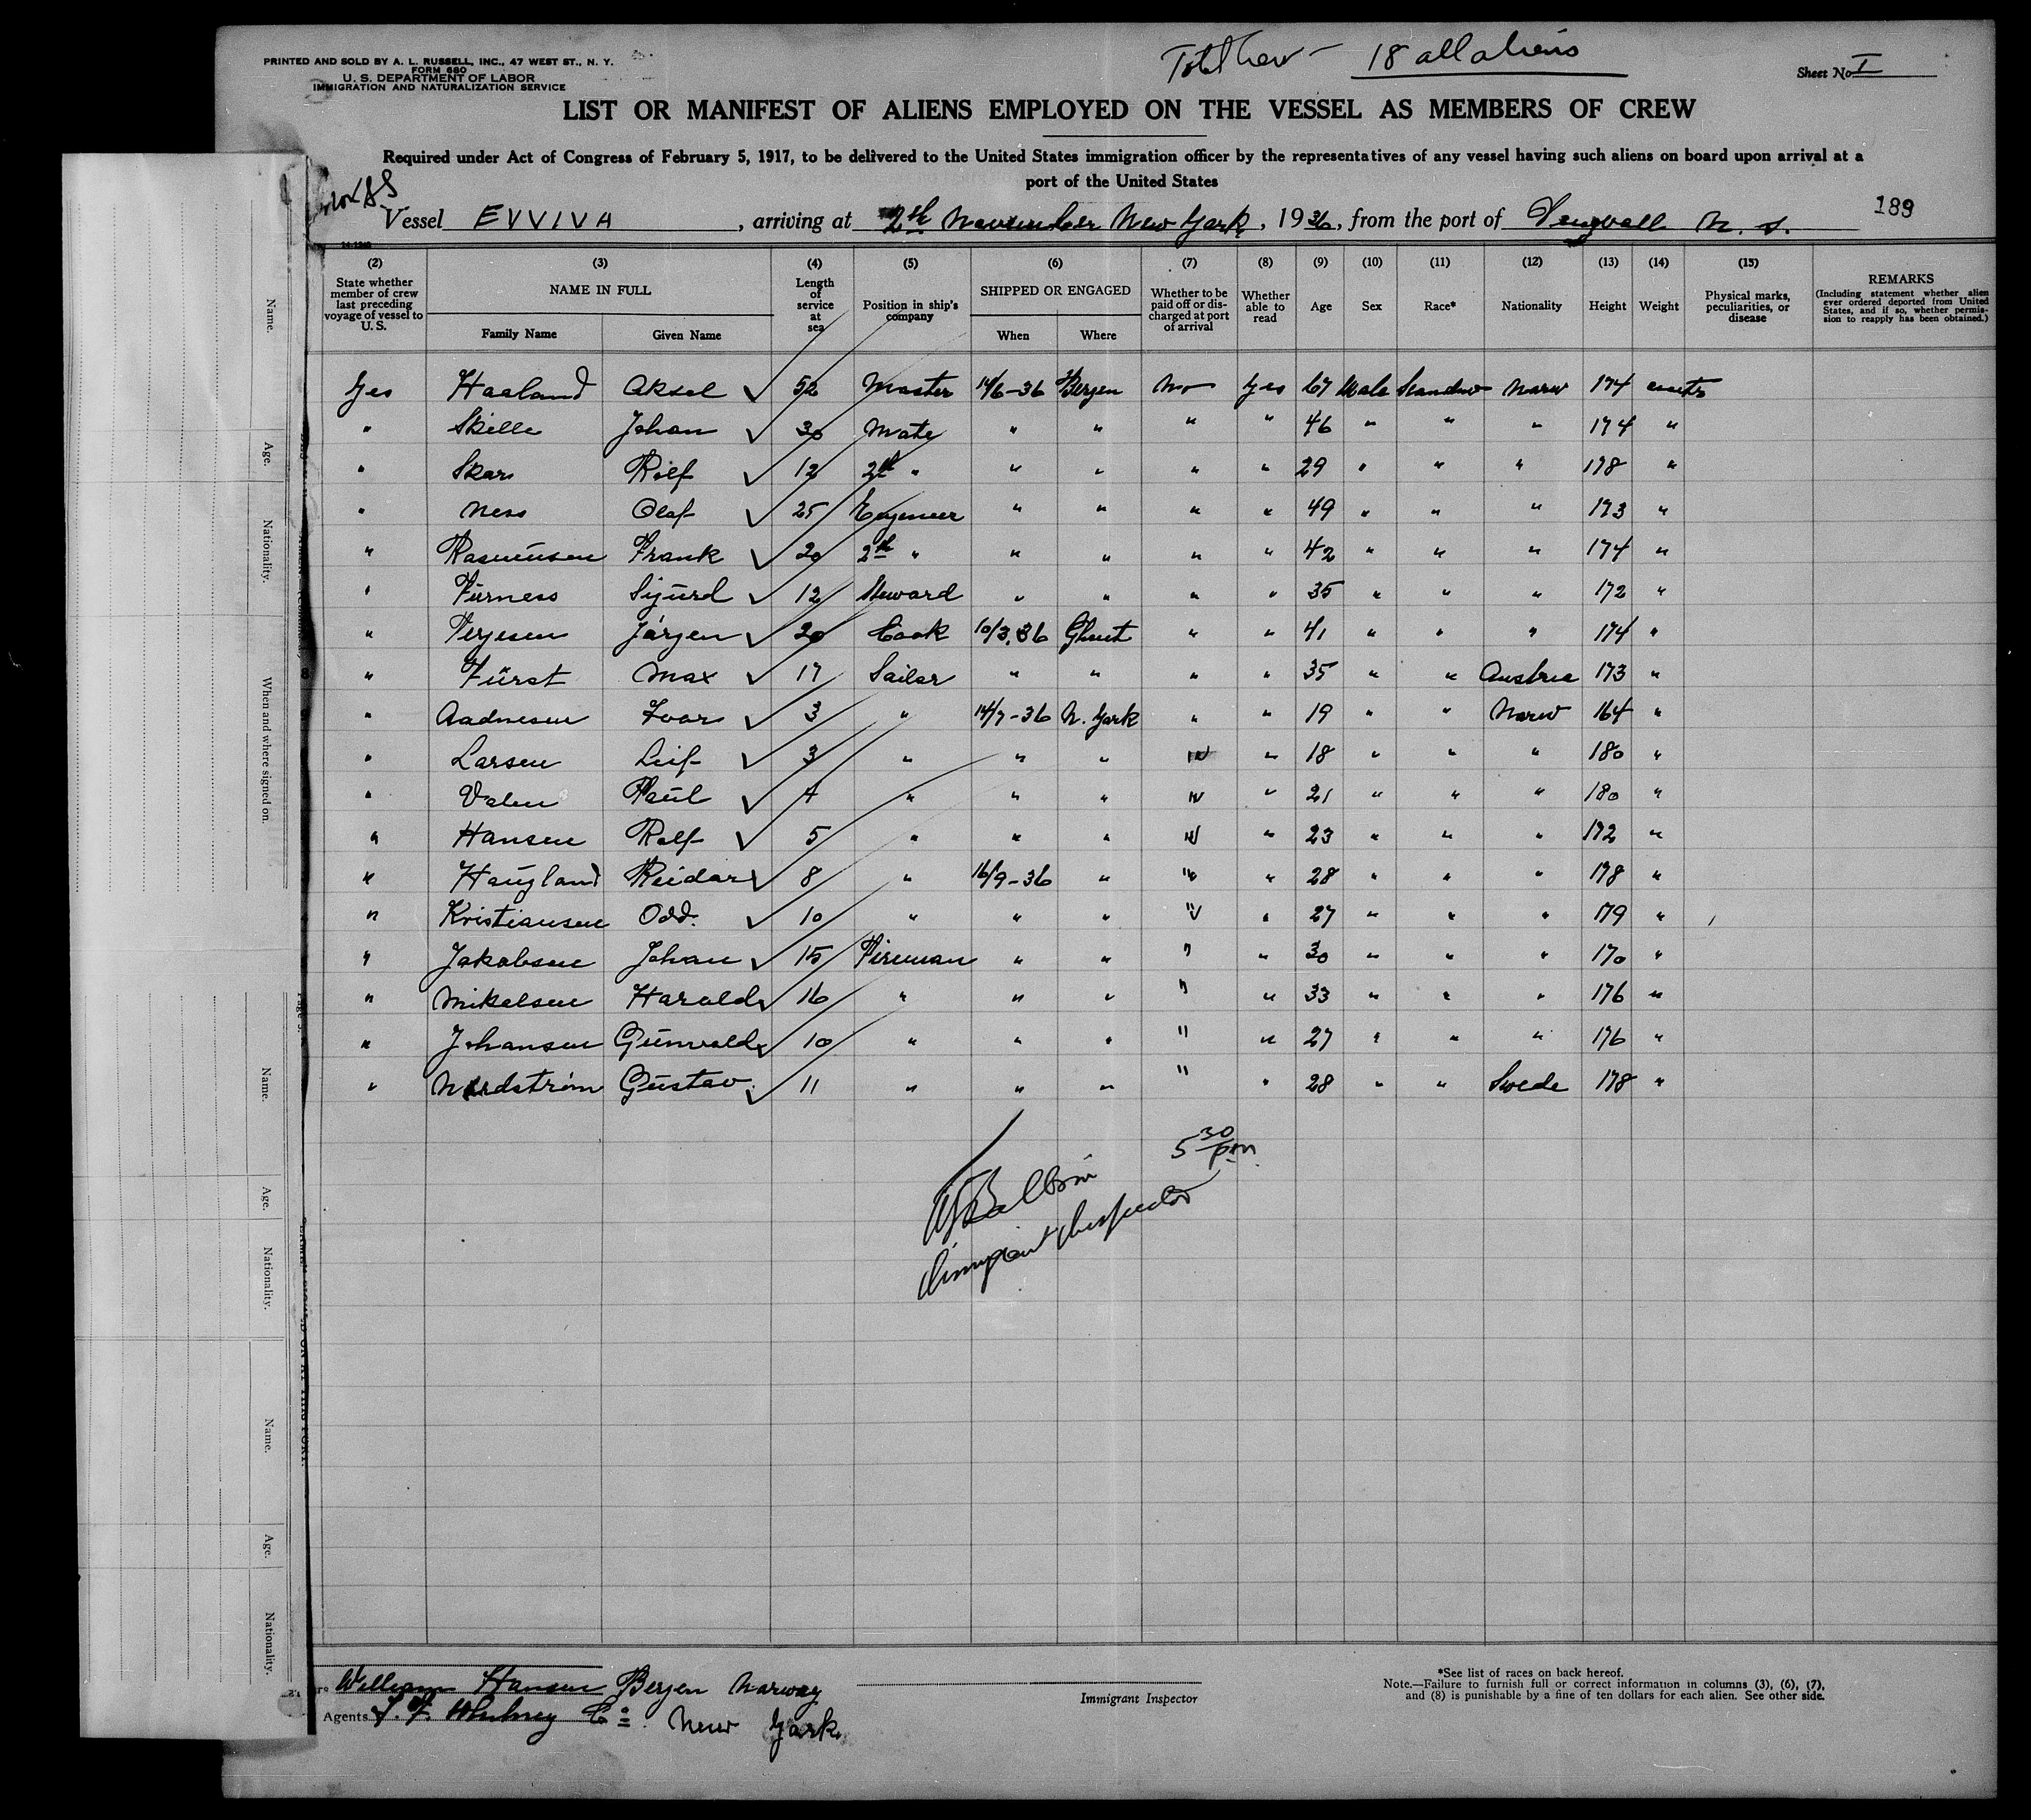 Total Crew - 18 all aliens
PRINTED AND SOLD BY A. L. RUSSELL, INC., 47 WEST ST., N. Y.
FORM 680
U. S. DEPARTMENT OF LABOR
IMMIGRATION AND NATURALIZATION SERVICE
Sheet No I
LIST OR MANIFEST OF ALIENS EMPLOYED ON THE VESSEL AS MEMBERS OF CREW
Required under Act of Congress of February 5, 1917, to be delivered to the United States immigration officer by the representatives of any vessel having such aliens on board upon arrival at a
port of the United States
Vessel EVVIVA, arriving at 2th November New York, 1936, from the port of N. S.
189
(2) (3) (4) (5) (6) (7) (8) (9) (10) (11) (12) (13) (14) (15)
State whether member of crew last preceding voyage of vessel to U. S. NAME IN FULL Family Name Given Name Length of service at sea Position in ship's company SHIPPED OR ENGAGED When Where Whether to be paid off or discharged at port of arrival Whether able to read Age Sex Race* Nationality Height Weight Physical marks, peculiarities, or disease REMARKS (Including statement whether alien ever ordered deported from United States, and if so, whether permission to reapply has been obtained.)
Yes Haaland Aksel ✓ 52 Master 14/6-36 Bergen No Yes 67 Male Scandinv Norw 174 cmtr
" Skille Johan ✓ 30 Mate " " " " 46 " " " 174 "
" Skar Rolf ✓ 12 2th " " " " " 29 " " " 178 "
" Ness Olaf ✓ 25 Engeneer " " " " 49 " " " 173 "
" Rasmussen Frank ✓ 20 2th " " " " " 42 " " " 174 "
" Furness Sigurd ✓ 12 Steward " " " " 35 " " " 172 "
" Terjesen Jörgen ✓ 20 Cook 10/3.36 Ghent " " 41 " " " 174 "
" Fürst Max ✓ 17 Sailor " " " " 35 " " Austria 173 "
" Aadnesen Ivar ✓ 3 " 14/7-36 N. York " " 19 " " Norw 164 "
" Larsen Leif ✓ 3 " " " " " 18 " " " 180 "
" Valen Paul ✓ 4 " " " " " 21 " " " 180 "
" Hansen Rolf ✓ 5 " " " " " 23 " " " 172 "
" Haugland Reidar ✓ 8 " 16/9-36 " " " 28 " " " 178 "
" Kristiansen Odd. ✓ 10 " " " " " 27 " " " 179 "
" Jakobsen Johan ✓ 15 Fireman " " " " 30 " " " 170 "
" Mikelsen Harald ✓ 16 " " " " " 33 " " " 176 "
" Johansen Gunvald ✓ 10 " " " " " 27 " " " 176 "
" Nordström Gustav ✓ 11 " " " " " 28 " " Swede 178 "
5 30 pm
Immigrant Inspector
William Hansen Bergen Norway
Agents Co New York
Immigrant Inspector
*See list of races on back hereof.
Note.—Failure to furnish full or correct information in columns (3), (6), (7),
and (8) is punishable by a fine of ten dollars for each alien. See other side.
Name.
Age.
Nationality.
When and where signed on.
Name.
Age.
Nationality.
Name.
Age.
Nationality.